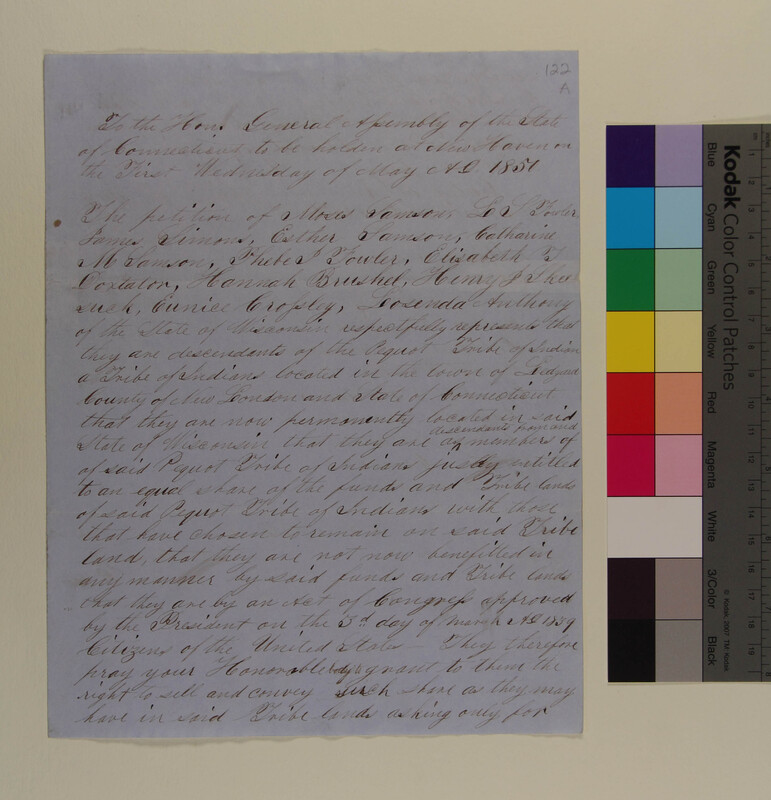 122
A
To the Hon. General Assembly of the State
of Connecticut to be holden at New Haven on
the First Wednesday of May A.D. 1851
The petition of Moses Samson, L. S. Fowler,
James Simons, Esther Samson, Catharine
M Samson, Phebe T Fowler, Elisabeth T
Doxtator, Hannah Brushel, Henry J Shee
such, Eunice Crosley, Losenda Anthony
of the State of Wisconsin respectfully represents that
they are descendants of the Pequot Tribe of Indian
a Tribe of Indians located in the town of Ledyard
County of New London and State of Connecticut
that they are now permanently located in said
State of Wisconsin that they are as descendants from and members of
of said Pequot Tribe of Indians justly entitled
to an equal share of the funds and Tribe lands
of said Pequot Tribe of Indians with those
that have chosen to remain on said Tribe
land, that they are not now benefitted in
any manner by said funds and Tribe lands
that they are by an Act of Congress approved
by the President on the 3d day of March AD 1839
Citizens of the United States They therefore
pray your Honorable body grant to them the
right to sell and convey such share as they may
have in said Tribe lands asking only for
Kodak Color Control Patches
Blue
Cyan
Green
Yellow
Red
Magenta
White
3/Color
Black
© Kodak, 2007 TM: Kodak